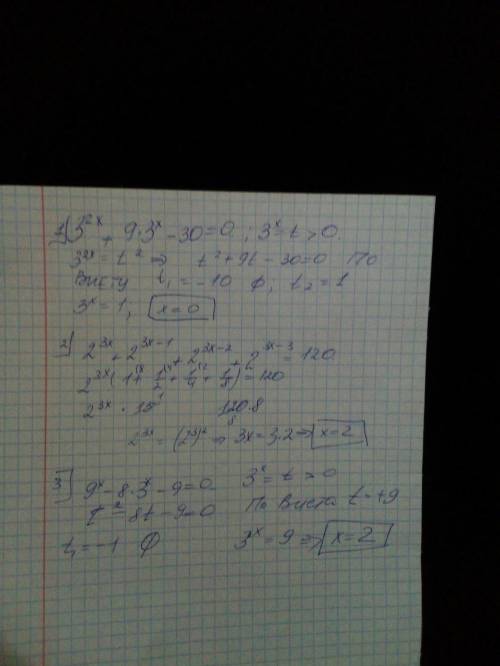 1) 3^{2x} + 9·3^x - 30 = 0 ; 3^x = t > 0.
3^{2x} = t^2 ⇒ t^2 + 9t - 30 = 0 По
Виету t_1 = -10 ∅, t_2 = 1
3^x = 1, x = 0
2) 2^{3x} + 2^{3x-1} + 2^{3x-2} + 2^{3x-3} = 120
2^{3x} (1 + 1/2 + 1/4 + 1/8) = 120
2^{3x} · 15 120·8
2^{3x} = (2^3)^2 ⇒ 3x = 3·2 ⇒ x = 2
3) 9^x - 8·3^x - 9 = 0 3^x = t > 0
t^2 - 8t - 9 = 0 По Виета t = +9
t_1 = -1 ∅ 3^x = 9 ⇒ x = 2